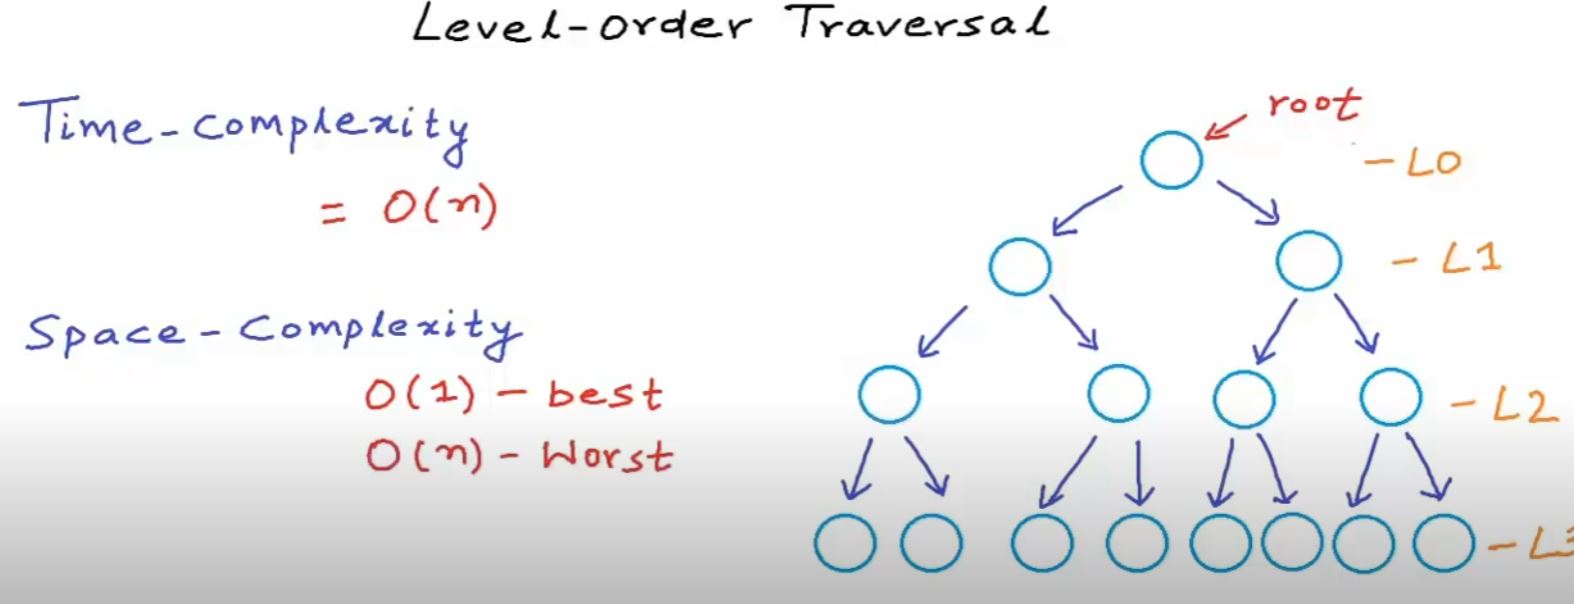 Level-order Traversal
Time-complexity
= O(n)
Space-Complexity
O(1) - best
O(n) - Worst
root
- L0
- L1
- L2